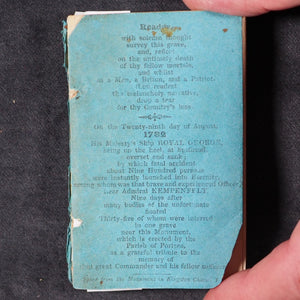 Reader
with solemn thought
survey this grave,
and, reflect
on the untimely death
of thy fellow mortals,
and whilst
as a Man, a Briton, and a Patriot,
thou readest
the melancholy narrative,
drop a tear
for thy Country's loss.
On the Twenty-ninth day of August,
1782
His Majesty's Ship ROYAL GEORGE,
being on the heel, at Spithead,
overset and sunk;
by which fatal accident
about Nine Hundred persons
were instantly launched into Eternity,
among whom was that brave and experienced Officer,
Rear Admiral KEMPENFELT.
Nine days after
many bodies of the unfortunate
floated
Thirty-five of whom were interred
in one grave
near this Monument,
which is erected by the
Parish of Portsea,
as a grateful tribute to the
memory of
that great Commander and his fellow sufferers
from the Monument in Kingston Church